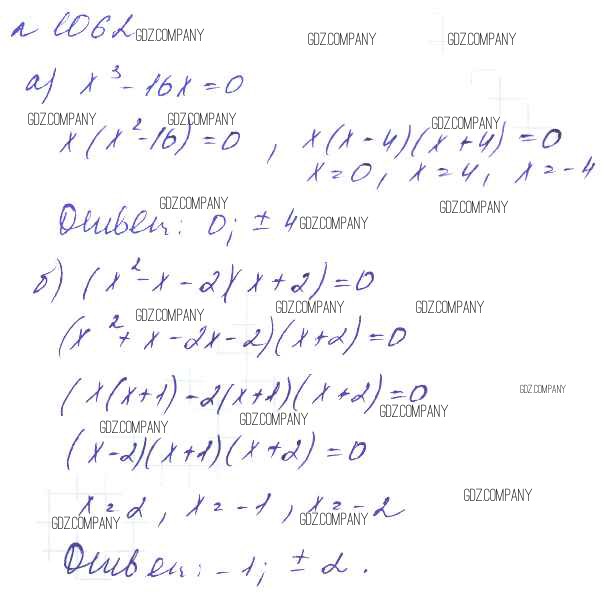 № 1062 GDZ.COMPANY GDZ.COMPANY GDZ.COMPANY
а) x³ - 16x = 0
GDZ.COMPANY GDZ.COMPANY GDZ.COMPANY
x(x² - 16) = 0 , x(x - 4)(x + 4) = 0
x = 0, x = 4, x = -4
GDZ.COMPANY GDZ.COMPANY
Ответ: 0; ± 4 GDZ.COMPANY
б) (x² - x - 2)(x + 2) = 0
GDZ.COMPANY GDZ.COMPANY GDZ.COMPANY
(x² + x - 2x - 2)(x + 2) = 0
(x(x+1) - 2(x+1)(x+2) = 0 GDZ.COMPANY
GDZ.COMPANY GDZ.COMPANY GDZ.COMPANY
(x-2)(x+1)(x+2) = 0
x = 2, x = -1, x = -2 GDZ.COMPANY
GDZ.COMPANY GDZ.COMPANY
Ответ: -1; ± 2.